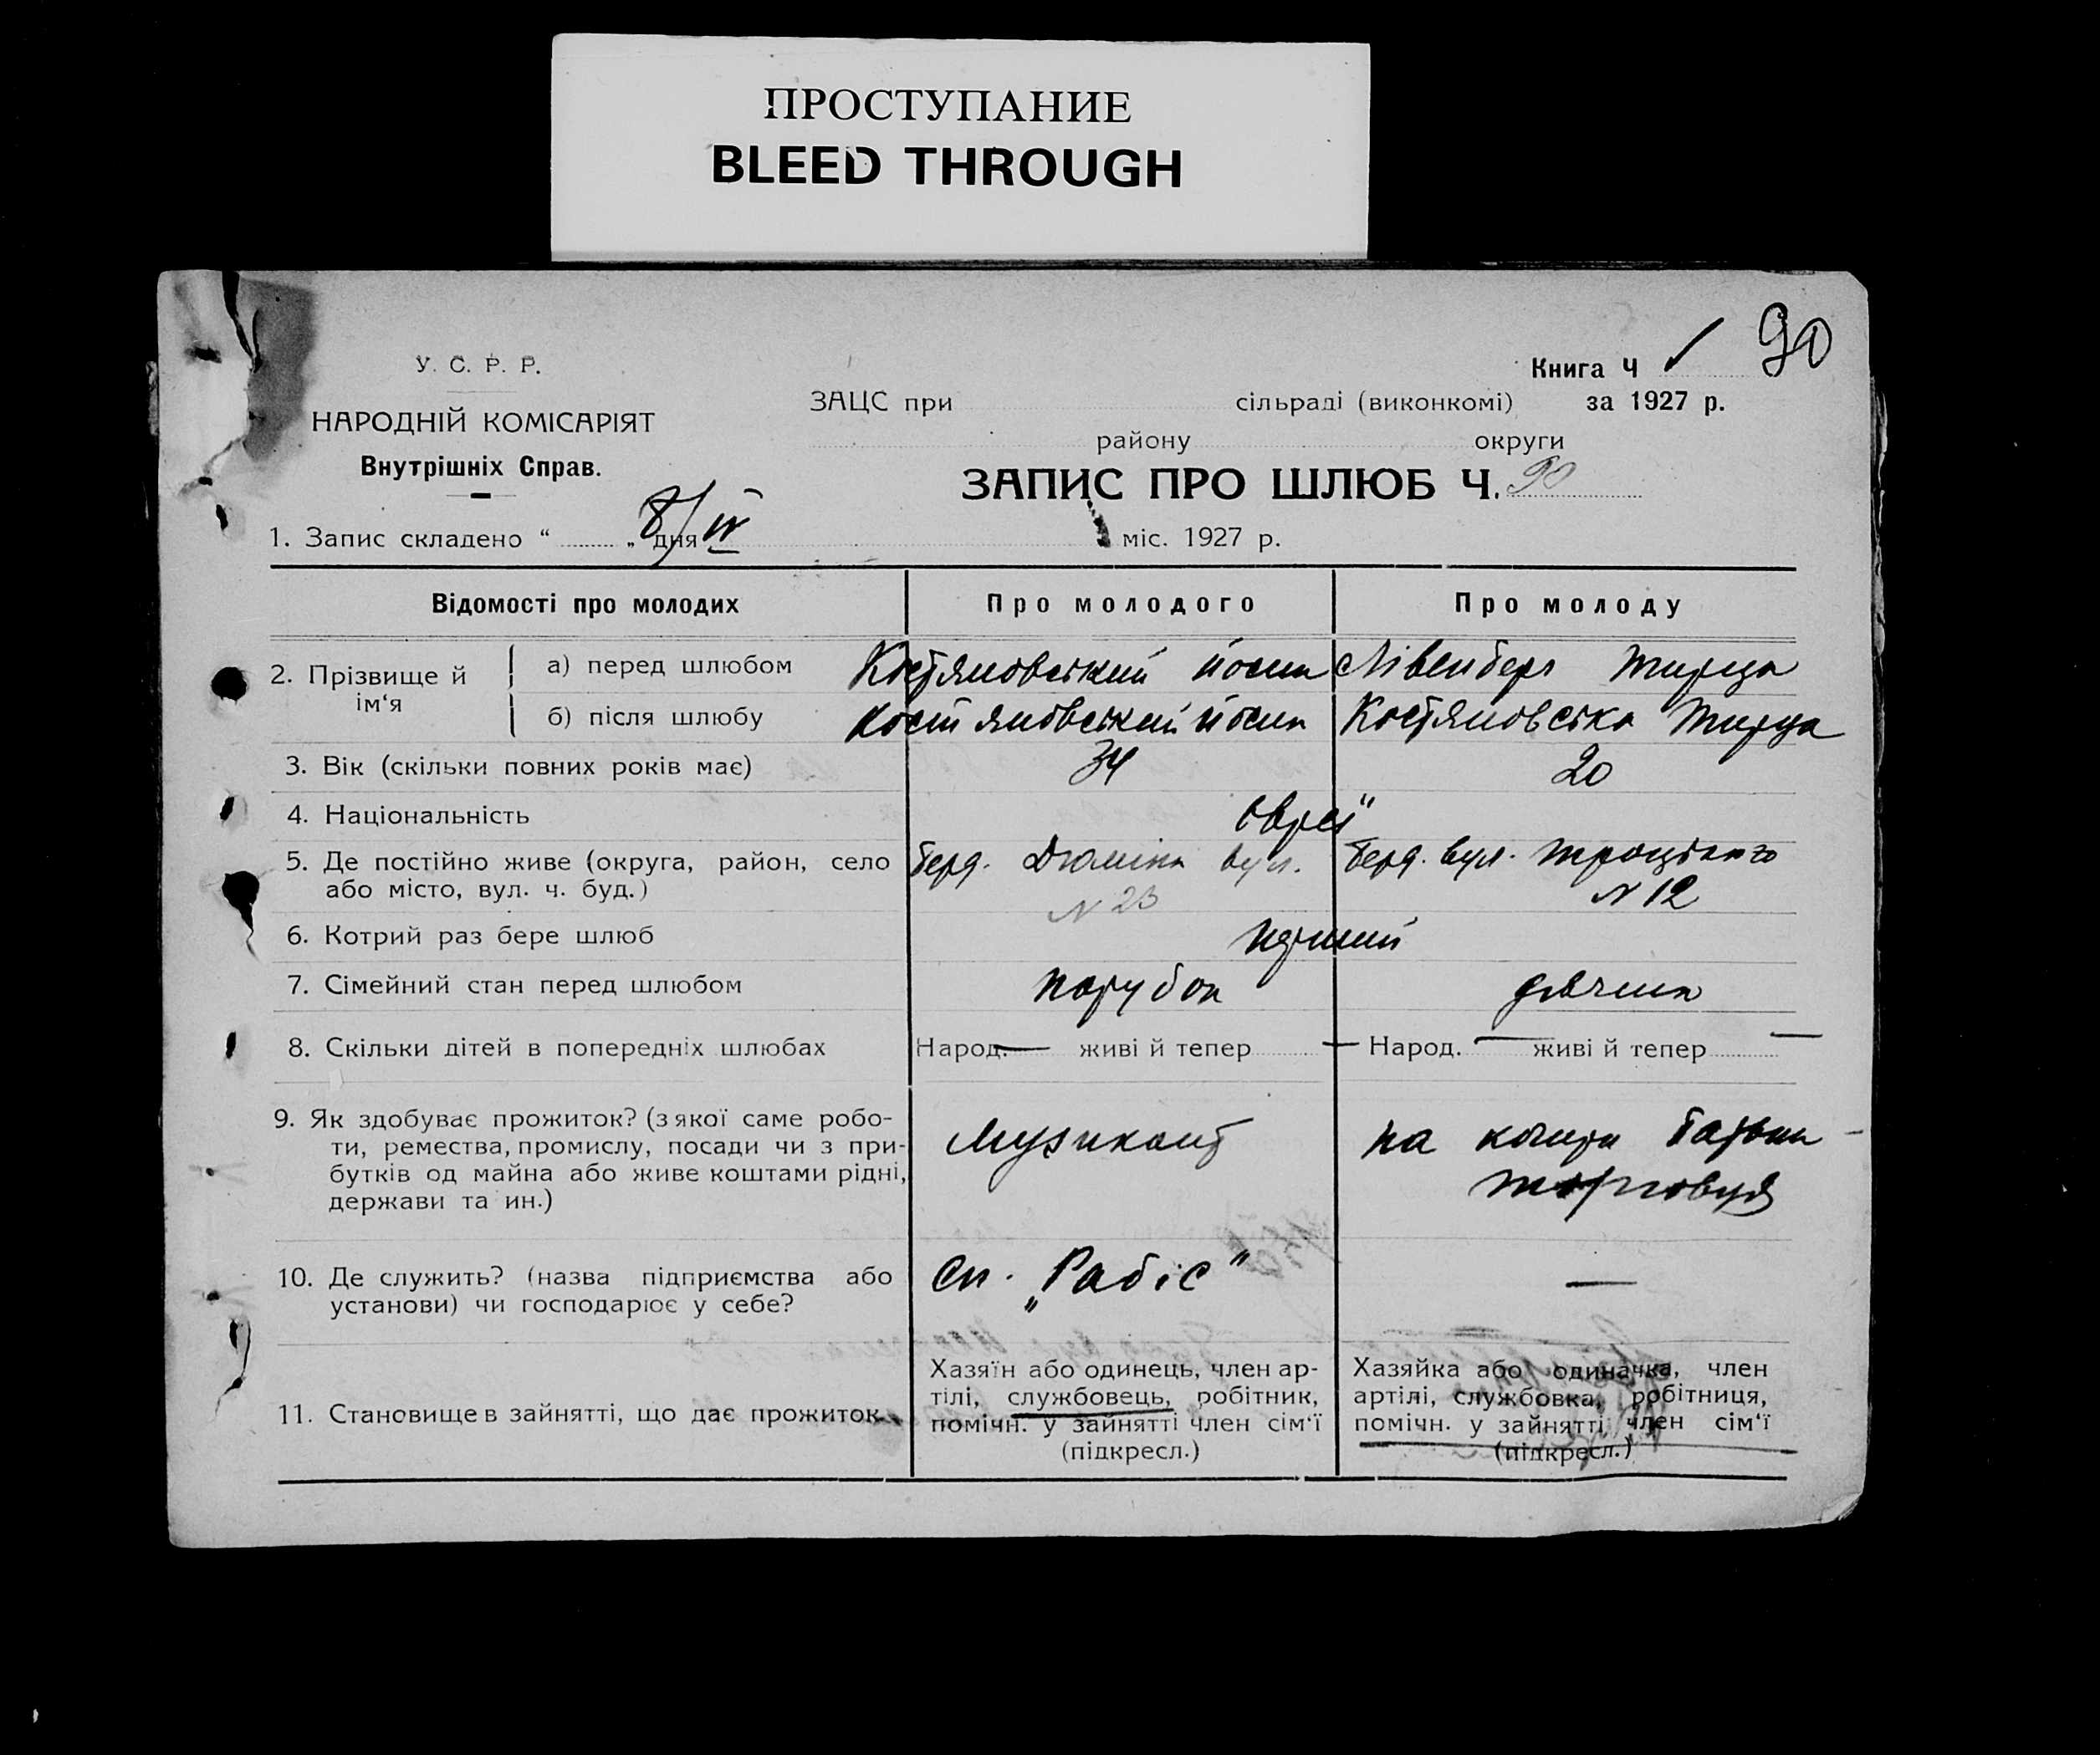 ПРОСТУПАНИЕ
BLEED THROUGH
90
У. С. Р. Р.
Книга Ч
ЗАЦС при сільраді (виконкомі) за 1927 р.
НАРОДНІЙ КОМІСАРІЯТ
району округи
Внутрішніх Справ.
ЗАПИС ПРО ШЛЮБ Ч. 90
1. Запис складено “ „ дня 8/IV міс. 1927 р.
Відомості про молодих Про молодого Про молоду
2. Прізвище й ім‘я
а) перед шлюбом Костяновський Йосип Лівенберг
б) після шлюбу Костяновський Йосип Костяновська
3. Вік (скільки повних років має) 34 20
4. Національність євреї
5. Де постійно живе (округа, район, село Берд. вул. Берд. вул. Троцького
або місто, вул. ч. буд.) N 23 N 12
6. Котрий раз бере шлюб перший
7. Сімейний стан перед шлюбом парубок дівчина
8. Скільки дітей в попередніх шлюбах Народ. — живі й тепер — Народ. — живі й тепер —
9. Як здобуває прожиток? (з якої саме робо-
ти, ремества, промислу, посади чи з при-
бутків од майна або живе коштами рідні,
держави та ин.)
Музикант
на кошти батьки -
торговця
10. Де служить? (назва підприємства або
установи) чи господарює у себе?
Сп. „Рабіс“
—
11. Становище в зайнятті, що дає прожиток
Хазяїн або одинець, член ар-
тілі, службовець, робітник,
помічн. у зайнятті член сім‘ї
(підкресл.)
Хазяйка або одиначка, член
артілі, службовка, робітниця,
помічн. у зайнятті, член сім‘ї
(підкресл.)